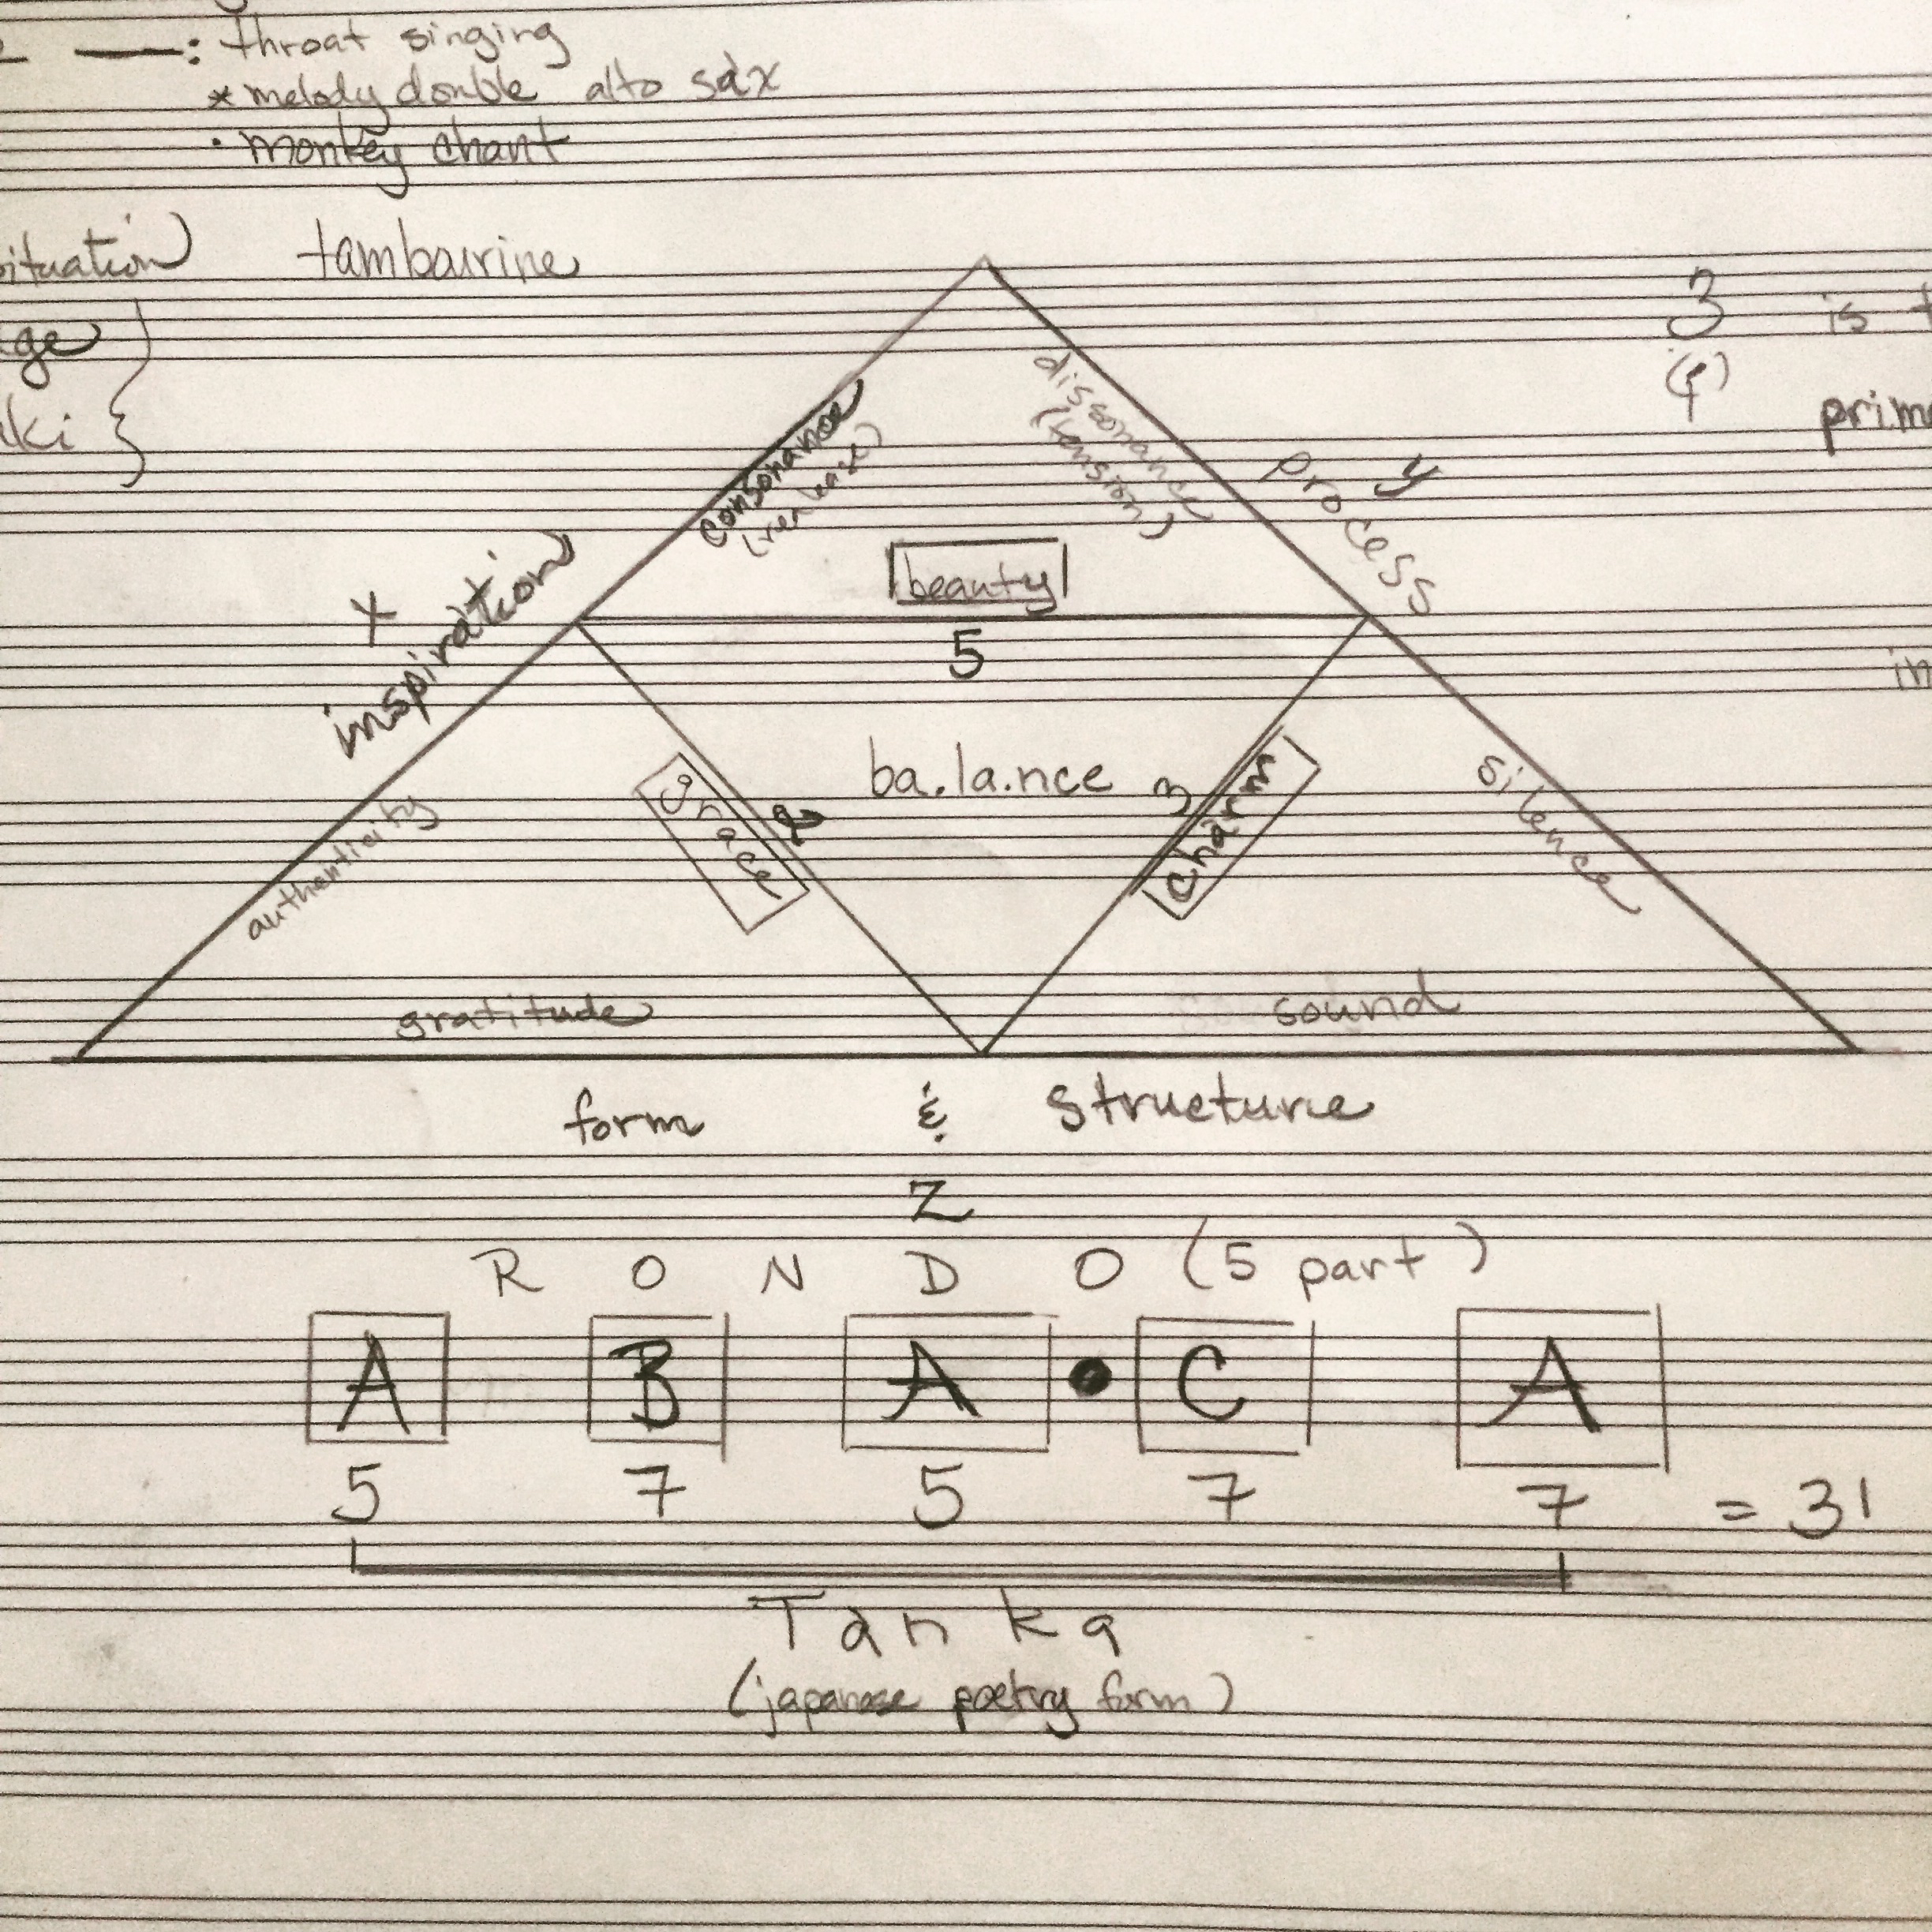 : throat singing
* melody double alto sax
· monkey chant
tambourine
3 is
consonance
(release)
dissonance
(tension)
y
process
x
inspiration
beauty
5
ba.la.nce
grace
2
3
charm
silence
authenticity
gratitude
sound
form & structure
z
R O N D O (5 part)
A B A • C A
5 7 5 7 7 = 31
Tanka
(japanese poetry form)